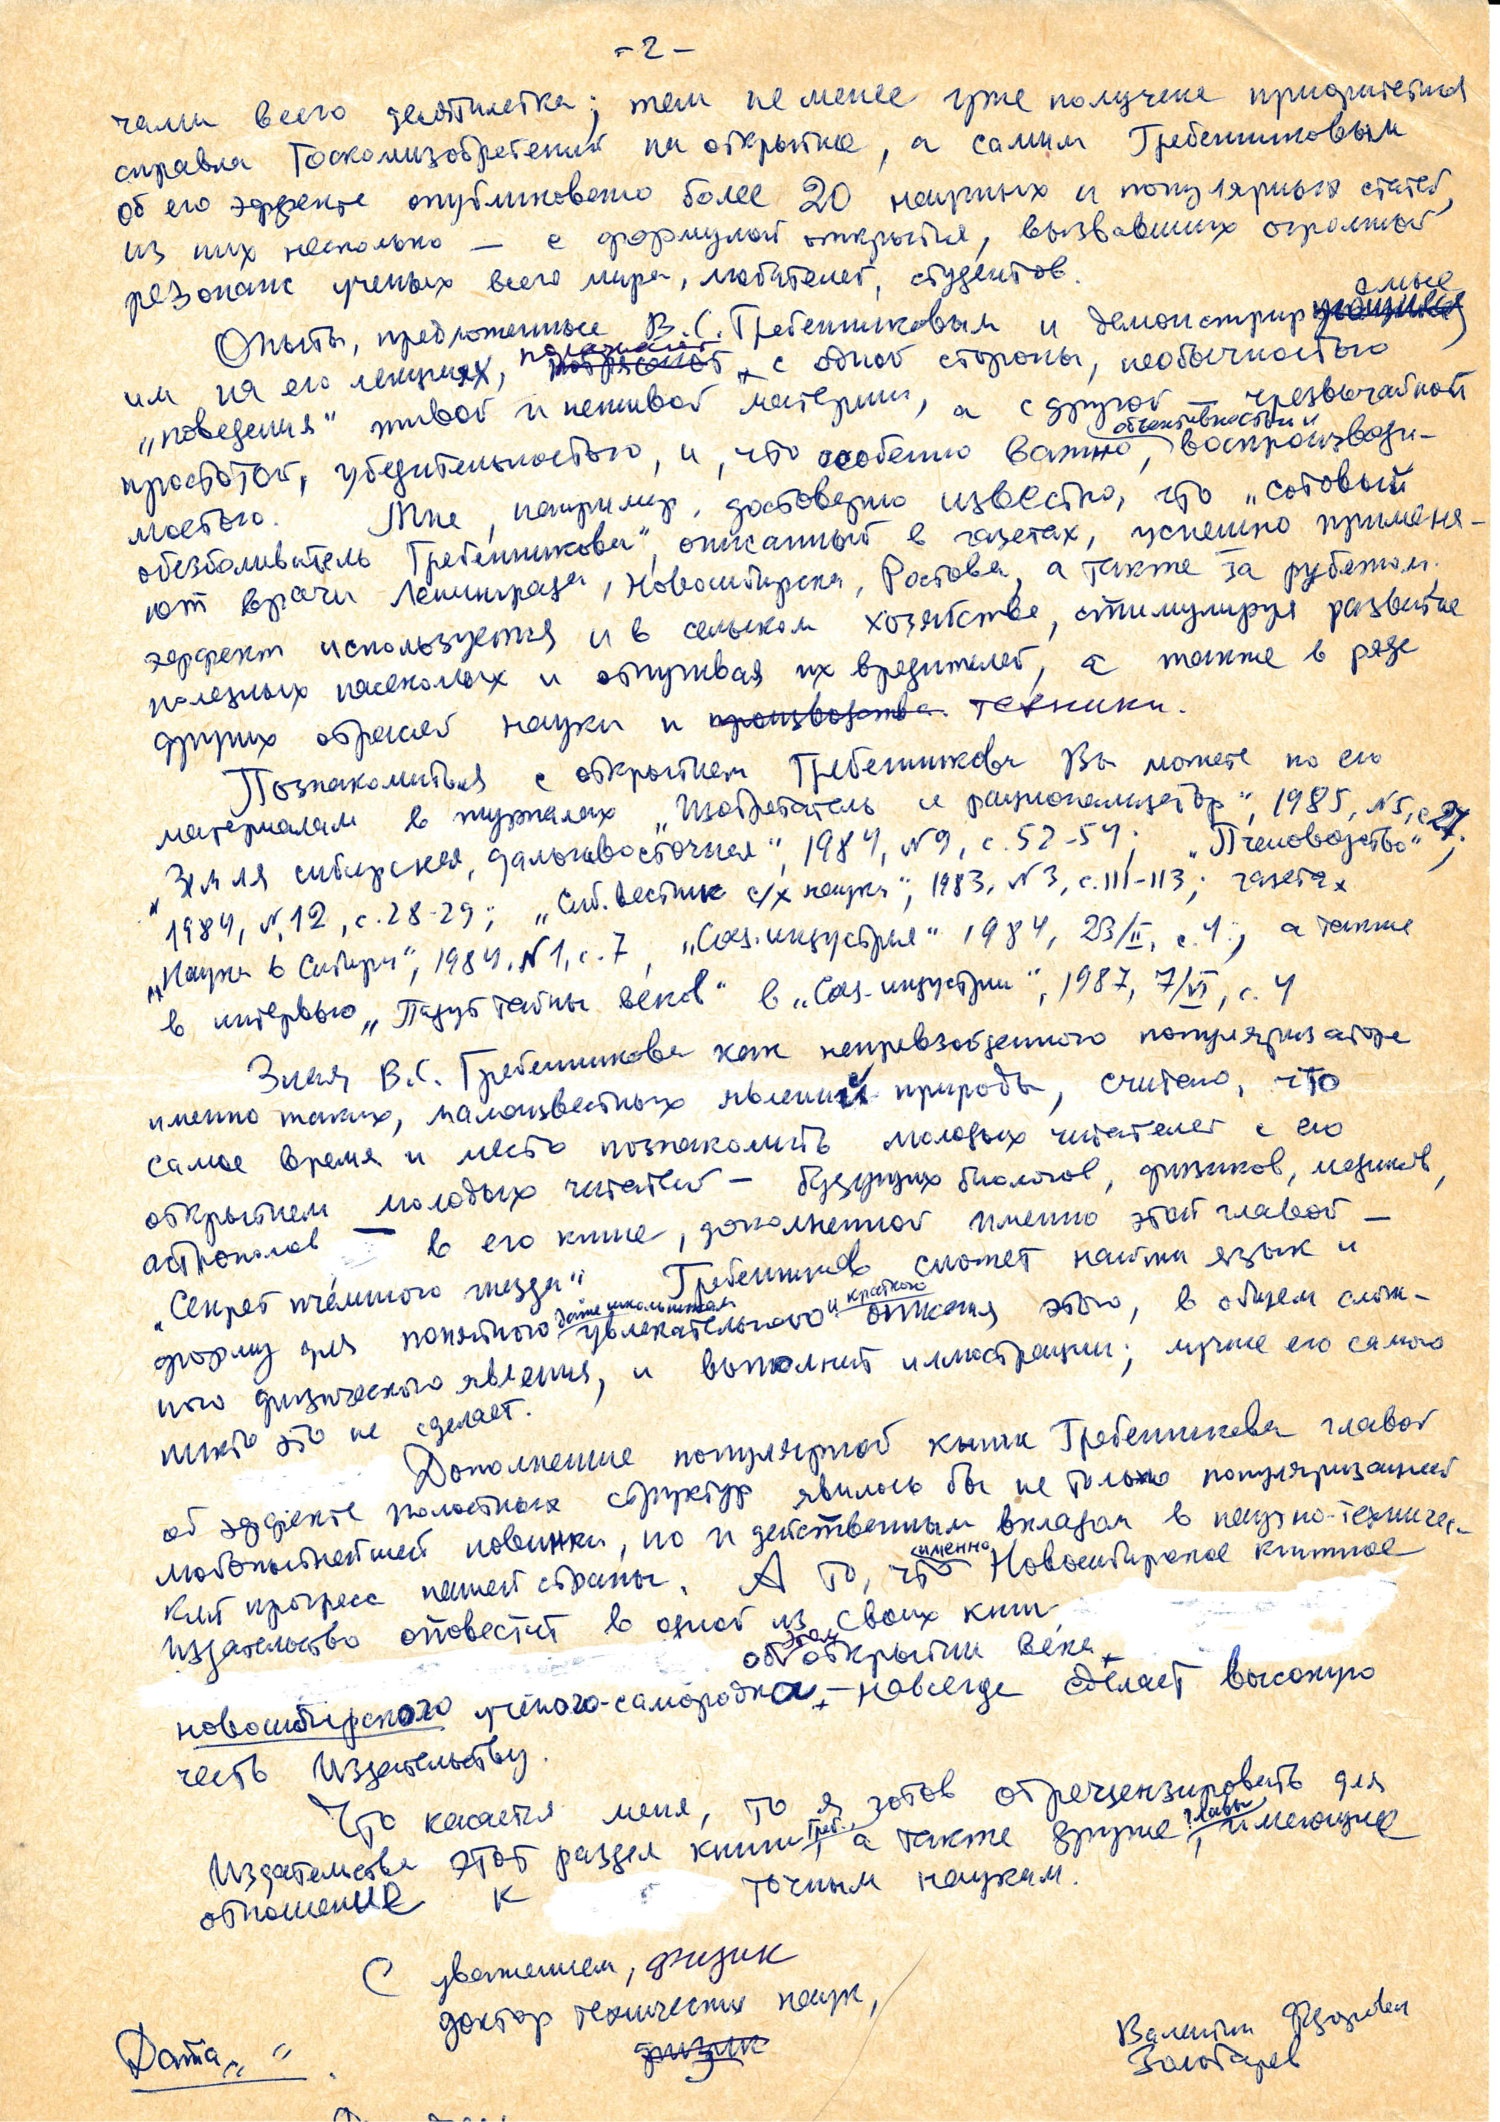 - 2 -
чами всего десятилетка; тем не менее уже получена приоритетная
справка Госкомизобретений на открытие, а самим Гребенниковым
об его эффекте опубликовано более 20 научных и популярных статей,
из них несколько — с формулой открытия, вызвавших огромный
резонанс ученых всего мира, любителей, студентов.
Опыты, предложенные В.С. Гребенниковым и демонстрируемые
им на его лекциях, поражают с одной стороны, необычностью
„поведения" живой и неживой материи, а с другой — чрезвычайной
простотой, убедительностью, и, что особенно важно, объективностью и воспроизводи-
мостью. Мне, например, достоверно известно, что „сотовый
обезболиватель Гребенникова", описанный в газетах, успешно применя-
ют врачи Ленинграда, Новосибирска, Ростова, а также за рубежом.
эффект используется и в сельском хозяйстве, стимулируя развитие
полезных насекомых и отпугивая их вредителей, а также в ряде
других отраслей науки и производства. техники.
Познакомиться с открытием Гребенникова Вы можете по его
материалам в журналах „Изобретатель и рационализатор", 1985, №5, с.27;
„Земля сибирская, дальневосточная", 1984, №9, с.52-54; „Пчеловодство",
1984, №12, с.28-29; „Сиб. вестник с/х науки", 1983, №3, с.111-113; газетах
„Наука в Сибири", 1984, №1, с.7, „Соц. индустрия" 1984, 23/II, с.4; а также
в интервью „Падут тайны веков" в „Соц. индустрии", 1987, 7/VI, с. 4
Зная В.С. Гребенникова как непревзойденного популяризатора
именно таких, малоизвестных явлений природы, считаю, что
самое время и место познакомить молодых читателей с его
открытием молодых читателей — будущих биологов, физиков, медиков,
астрономов — в его книге, дополненной именно этой главой —
„Секрет пчелиного гнезда". Гребенников сможет найти язык и
форму для понятного даже школьникам увлекательного и краткого описания этого, в общем слож-
ного физического явления, и выполнит иллюстрации; лучше его самого
никто это не сделает.
Дополнение популярной книги Гребенникова главой
об эффекте полостных структур явилось бы не только популяризацией
любопытнейшей новинки, но и действенным вкладом в научно-техничес-
кий прогресс нашей страны. А то, что именно Новосибирское книжное
издательство оповестит в одной из своих книг
об этом открытии века
новосибирского учёного-самородка, — навсегда сделает высокую
честь Издательству.
Что касается меня, то я готов отрецензировать для
Издательства этот раздел книги Греб., а также другие главы, имеющие
отношение к точным наукам.
С уважением, физик
доктор технических наук,
физик
Валентин Федорович
Золотарев
Дата „ "